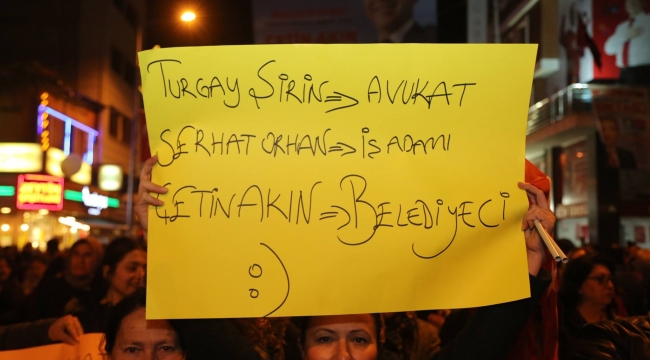 ÇETİN AKIN
TURGAY ŞİRİN => AVUKAT
SERHAT ORHAN => İŞ ADAMI
ÇETİN AKIN => BELEDİYECİ
:)